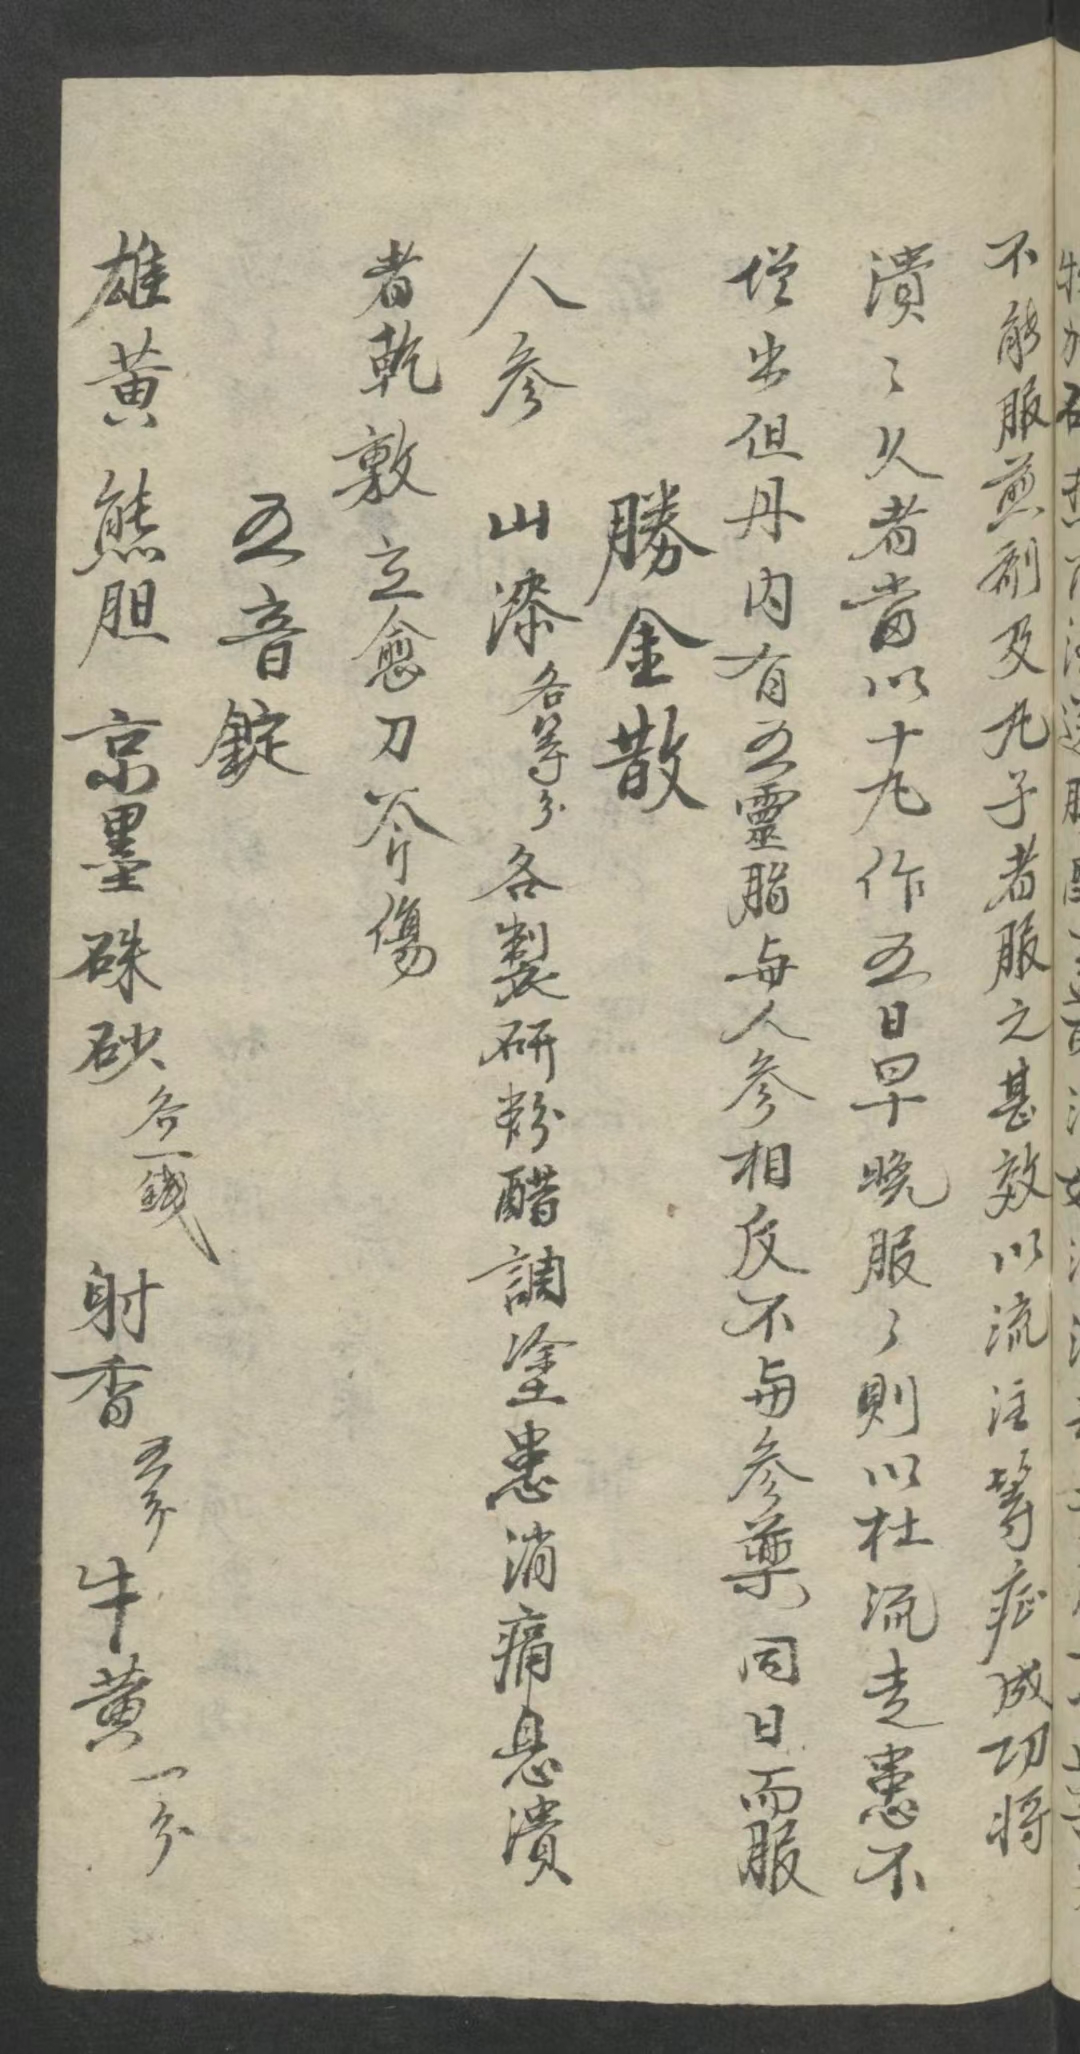 不能服煎劑及丸子者服之甚效以流注等症成功將
潰〻久者當以十丸作五日早晚服〻則以杜流走患不
增出但丹内有五靈脂与人參相反不与參藥同日而服
勝金散
人參 山漆各等分各製研粉醋調塗患消痛息潰
者乾敷立愈刀斧傷
五音錠
雄黄 熊胆 京墨 硃砂各一錢 射香五分 牛黄一分